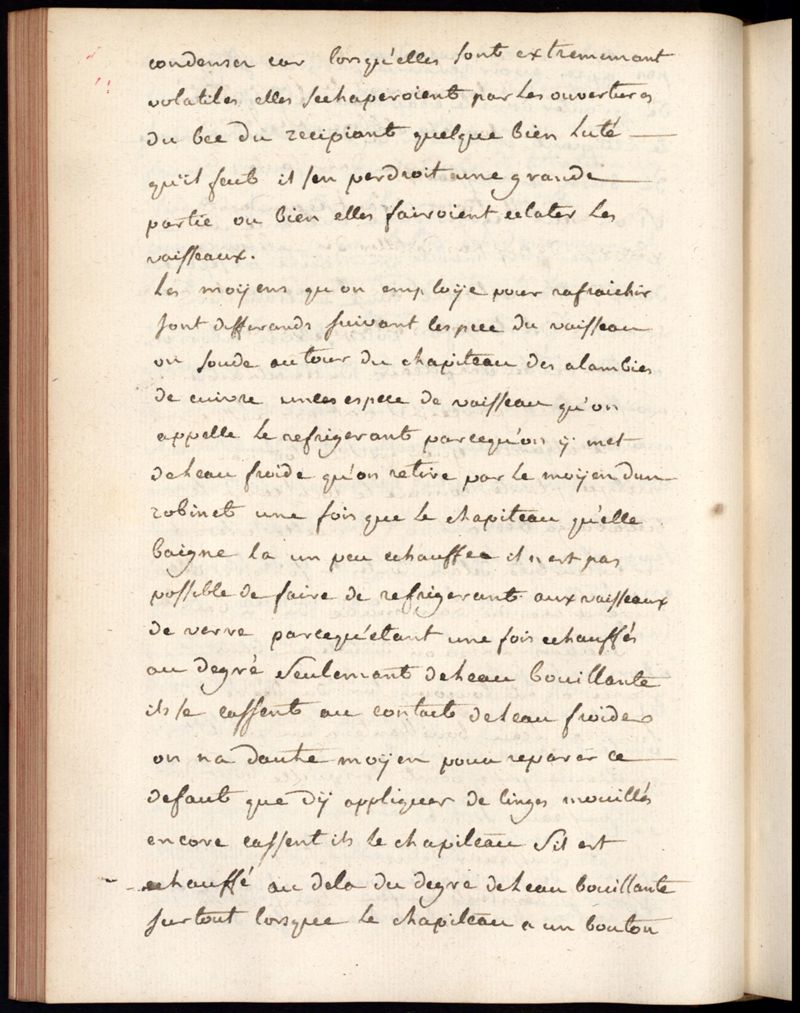 condenser car lorsqu'elles sont extrememant
volatiles elles sechaperoient par les ouvertures
du bec du recipiant quelque bien luté
qu'il feut il sen perdroit une grande
partie ou bien elles fairoient eclater les
vaisseaux.
les moÿens qu on emploÿe pour rafraichir
sont differands suivant lespece du vaisseau
on soude autour du chapiteau des alambics
de cuivre unees espece de vaisseau qu'on
appelle le refrigerant parcequ'on ÿ met
deleau froide qu'on retire par le moÿen dun
robinet une fois que le chapiteau qu'elle
baigne la un peu echauffee il n est pas
possible de faire de refrigerant aux vaisseaux
de verre parcequ'etant une fois echauffés
au degré seulemant deleau bouillante
ils se cassent au contact deleau froide
on na dautre moÿen pour reparer ce
defaut que dÿ appliquer de linges mouillés
encore cassent ils le chapiteau s'il est
echauffé au dela du degre deleau bouillante
surtout lorsquee le chapiteau a un bouton